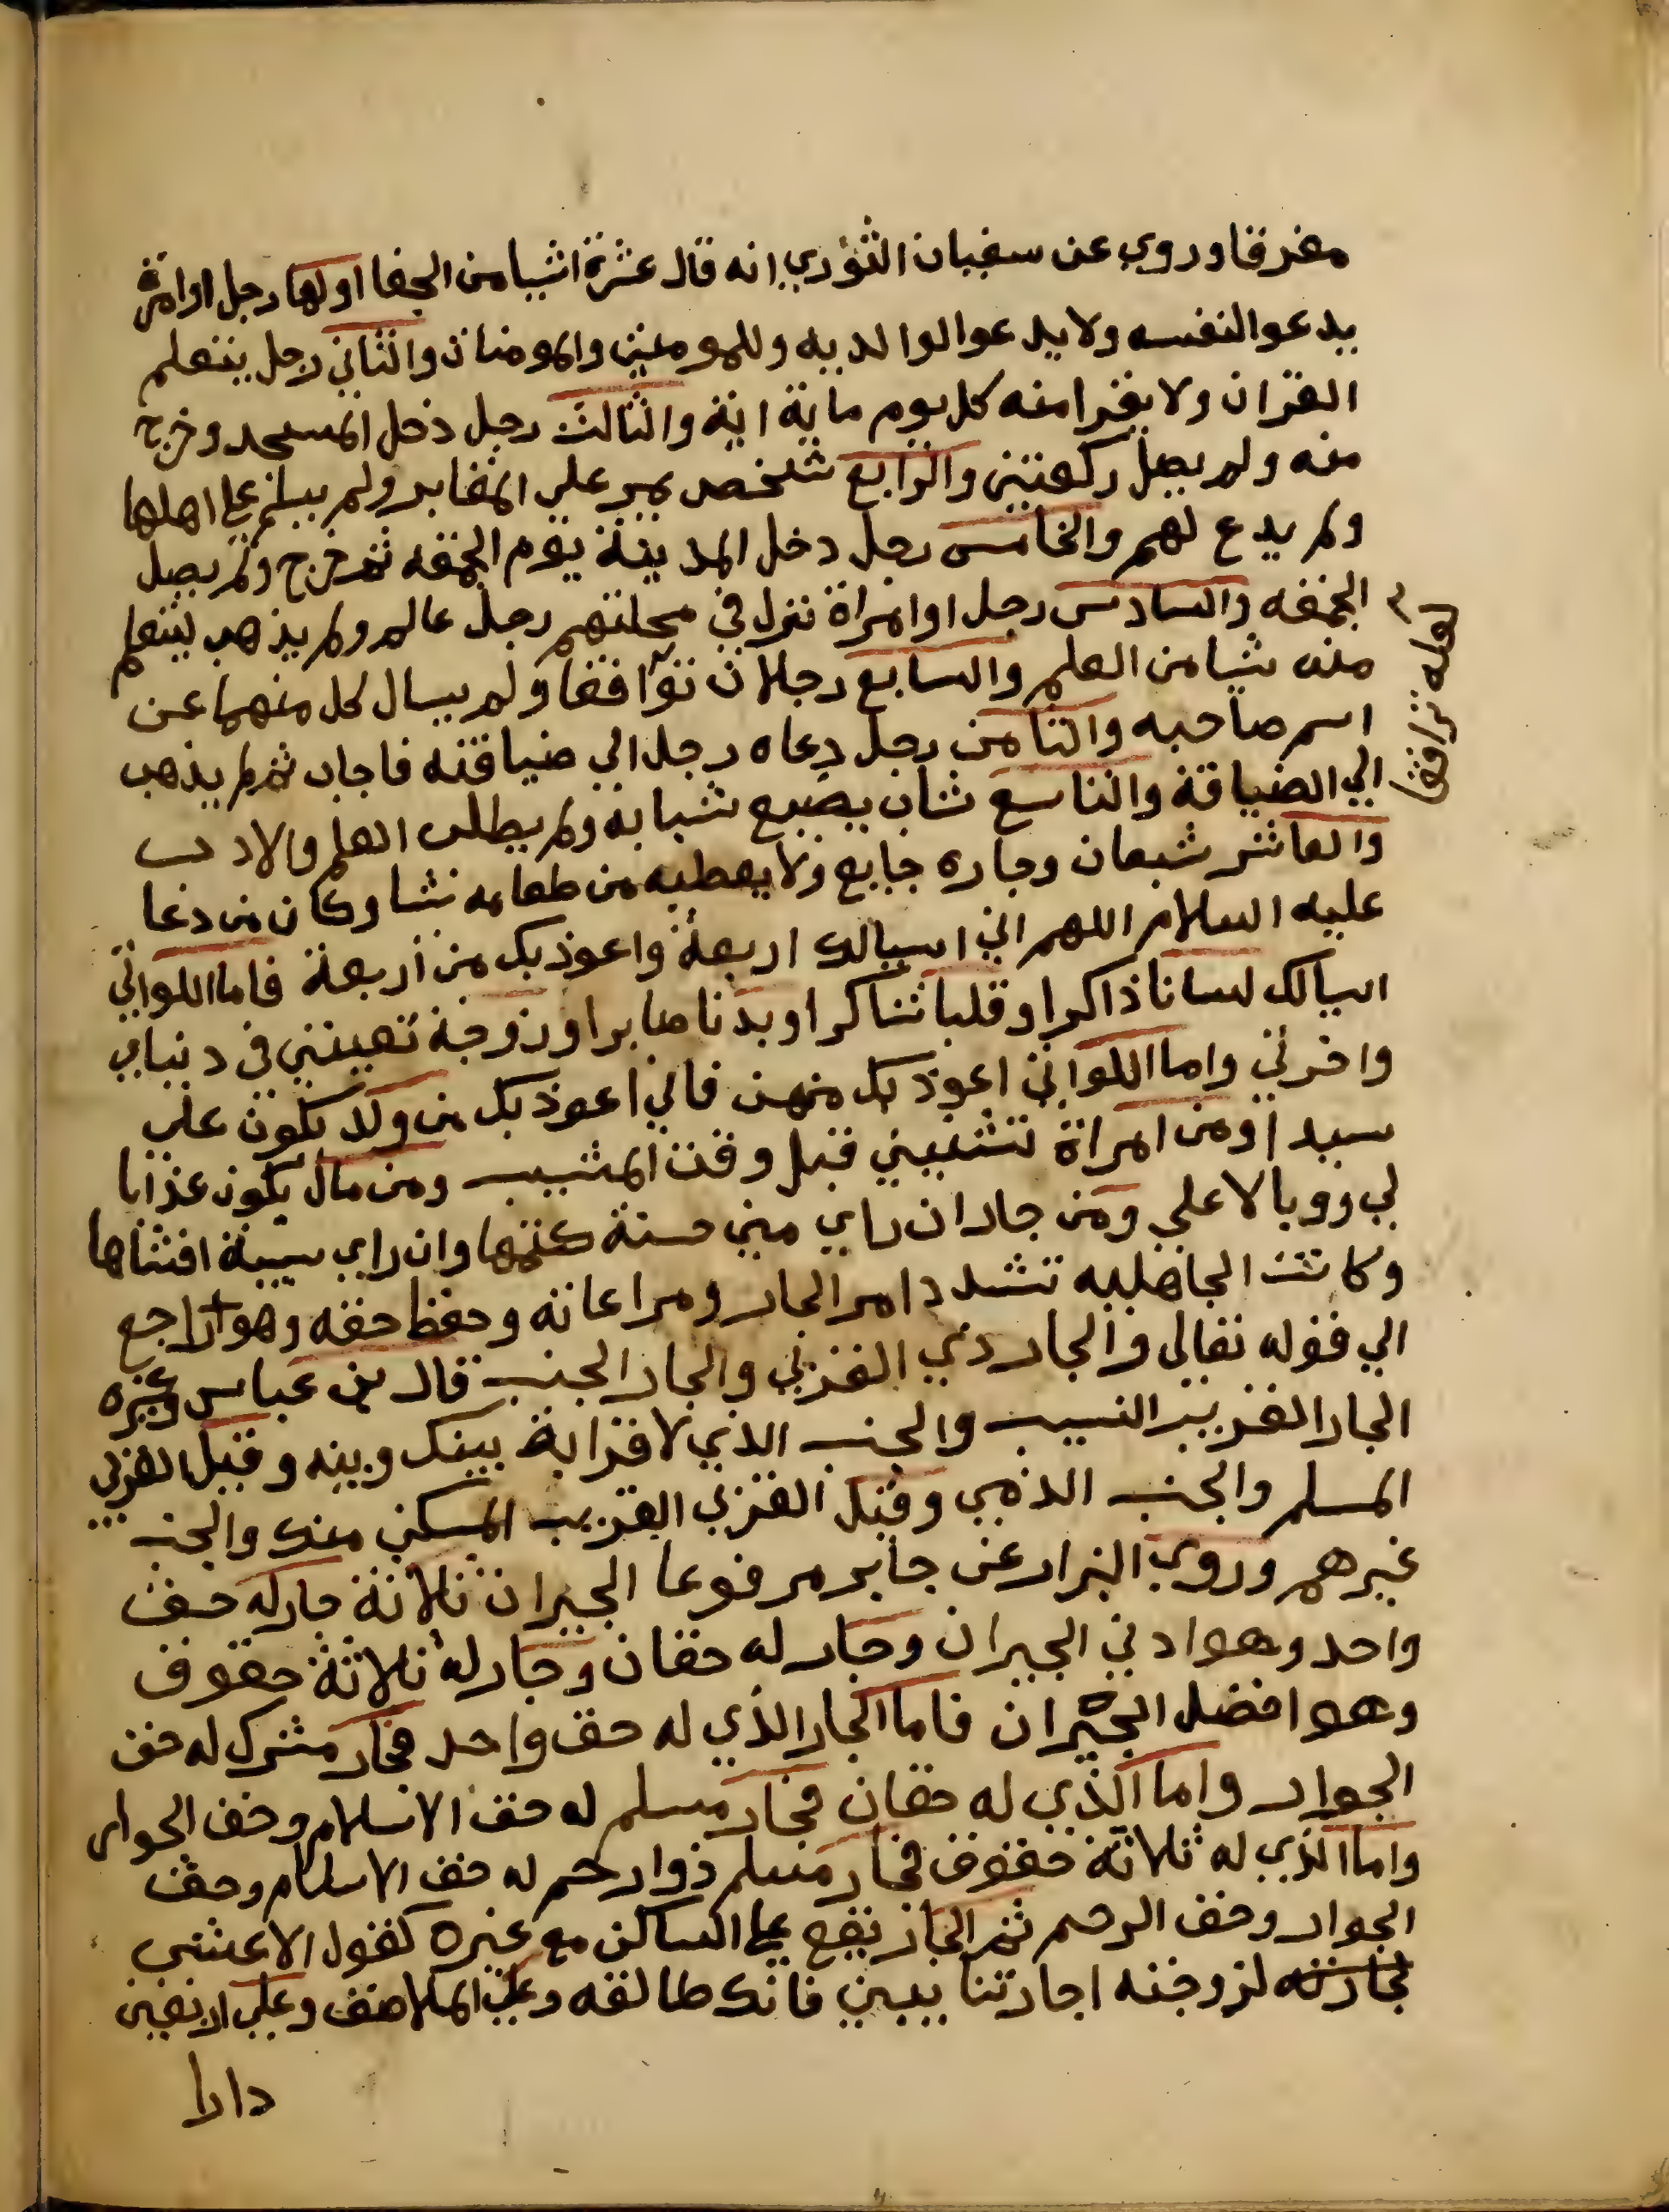 مغرقا وروي عن سفيان الثوري انه قال عشرة اشيا من الجفا اولها رجل او امراة
يدعو النفسه ولا يدعو الوالديه وللمومنين والمومنات والثاني رجل يتعلم
القران ولا يقرا منه كل يوم ماية اية والثالث رجل دخل المسجد وخرج
منه ولم يصل ركعتين والرابع شخص يمر على المقابر ولم يسلم على اهلها
ولم يدع لهم والخامس رجل دخل المدينة يوم الجمعه ثم خرج ولم يصل
الجمعه والسادس رجل او امراة نزل في محلتهم رجل عالم ولم يذهب ليتعلم
منه شيا من العلم والسابع رجلان توافقا ولم يسال كل منهما عن
لعله ترافقا
اسم صاحبه والثامن رجل دعاه رجل الي ضيافته فاجاب ثم لم يذهب
الي الضيافة والتاسع شاب يضيع شبابه ولم يطلب العلم والادب
والعاشر شبعان وجاره جايع ولا يعطيه من طعامه شيا وكان من دعا
عليه السلام اللهم اني اسيالك اربعة واعوذ بك من اربعة فاما اللواتي
اسيالك لسانا ذاكرا وقلبا شاكرا وبدنا صابرا وزوجة تعينني في دنياي
واخرتي واما اللواتي اعوذ بك منهن فاني اعوذ بك من ولد يكون علي
سيدا ومن امراة تشيبني قبل وقت المشيب ومن مال يكون عذابا
لي ووبالا علي ومن جار ان راي مني حسنة كتمها وان راي سيية افشاها
وكانت الجاهليه تشدد امر الجار ومراعاته وحفظ حقه وهو راجع
الي قوله تعالي والجار ذي القربي والجار الجنب قال بن عباس وغيره
الجار القريب النسيب والجنب الذي لا قرابة بينك وبينه وقيل القربي
المسلم والجنب الذمي وقيل القربي القريب المسكن منك والجنب
غيرهم وروي البزار عن جابر مرفوعا الجيران ثلاثة جار له حق
واحد وهو ادني الجيران وجار له حقان وجار له ثلاثة حقوق
وهو افضل الجيران فاما الجار الذي له حق واحد فجار مشرك له حق
الجوار واما الذي له حقان فجار مسلم له حق الاسلام وحق الجوار
واما الذي له ثلاثة حقوق فجار مسلم ذوا رحم له حق الاسلام وحق
الجوار وحق الرحم ثم الجار يقع على الساكن مع غيره كقول الاعشي
لجارته لزوجته اجارتنا بيني فانك طالقه وعلي الملاصق وعلي اربعين
دارا